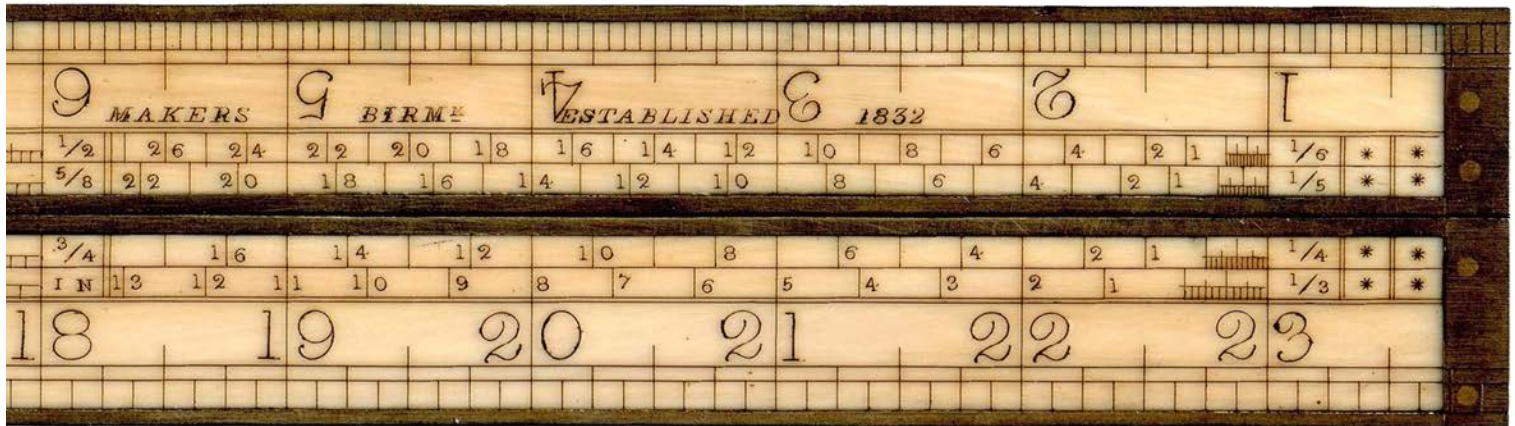 6 5 4 3 2 1
MAKERS BIRMM ESTABLISHED 1832
1/2 26 24 22 20 18 16 14 12 10 8 6 4 2 1 1/6 * *
5/8 22 20 18 16 14 12 10 8 6 4 2 1 1/5 * *
3/4 16 14 12 10 8 6 4 2 1 1/4 * *
IN 13 12 11 10 9 8 7 6 5 4 3 2 1 1/3 * *
18 19 20 21 22 23